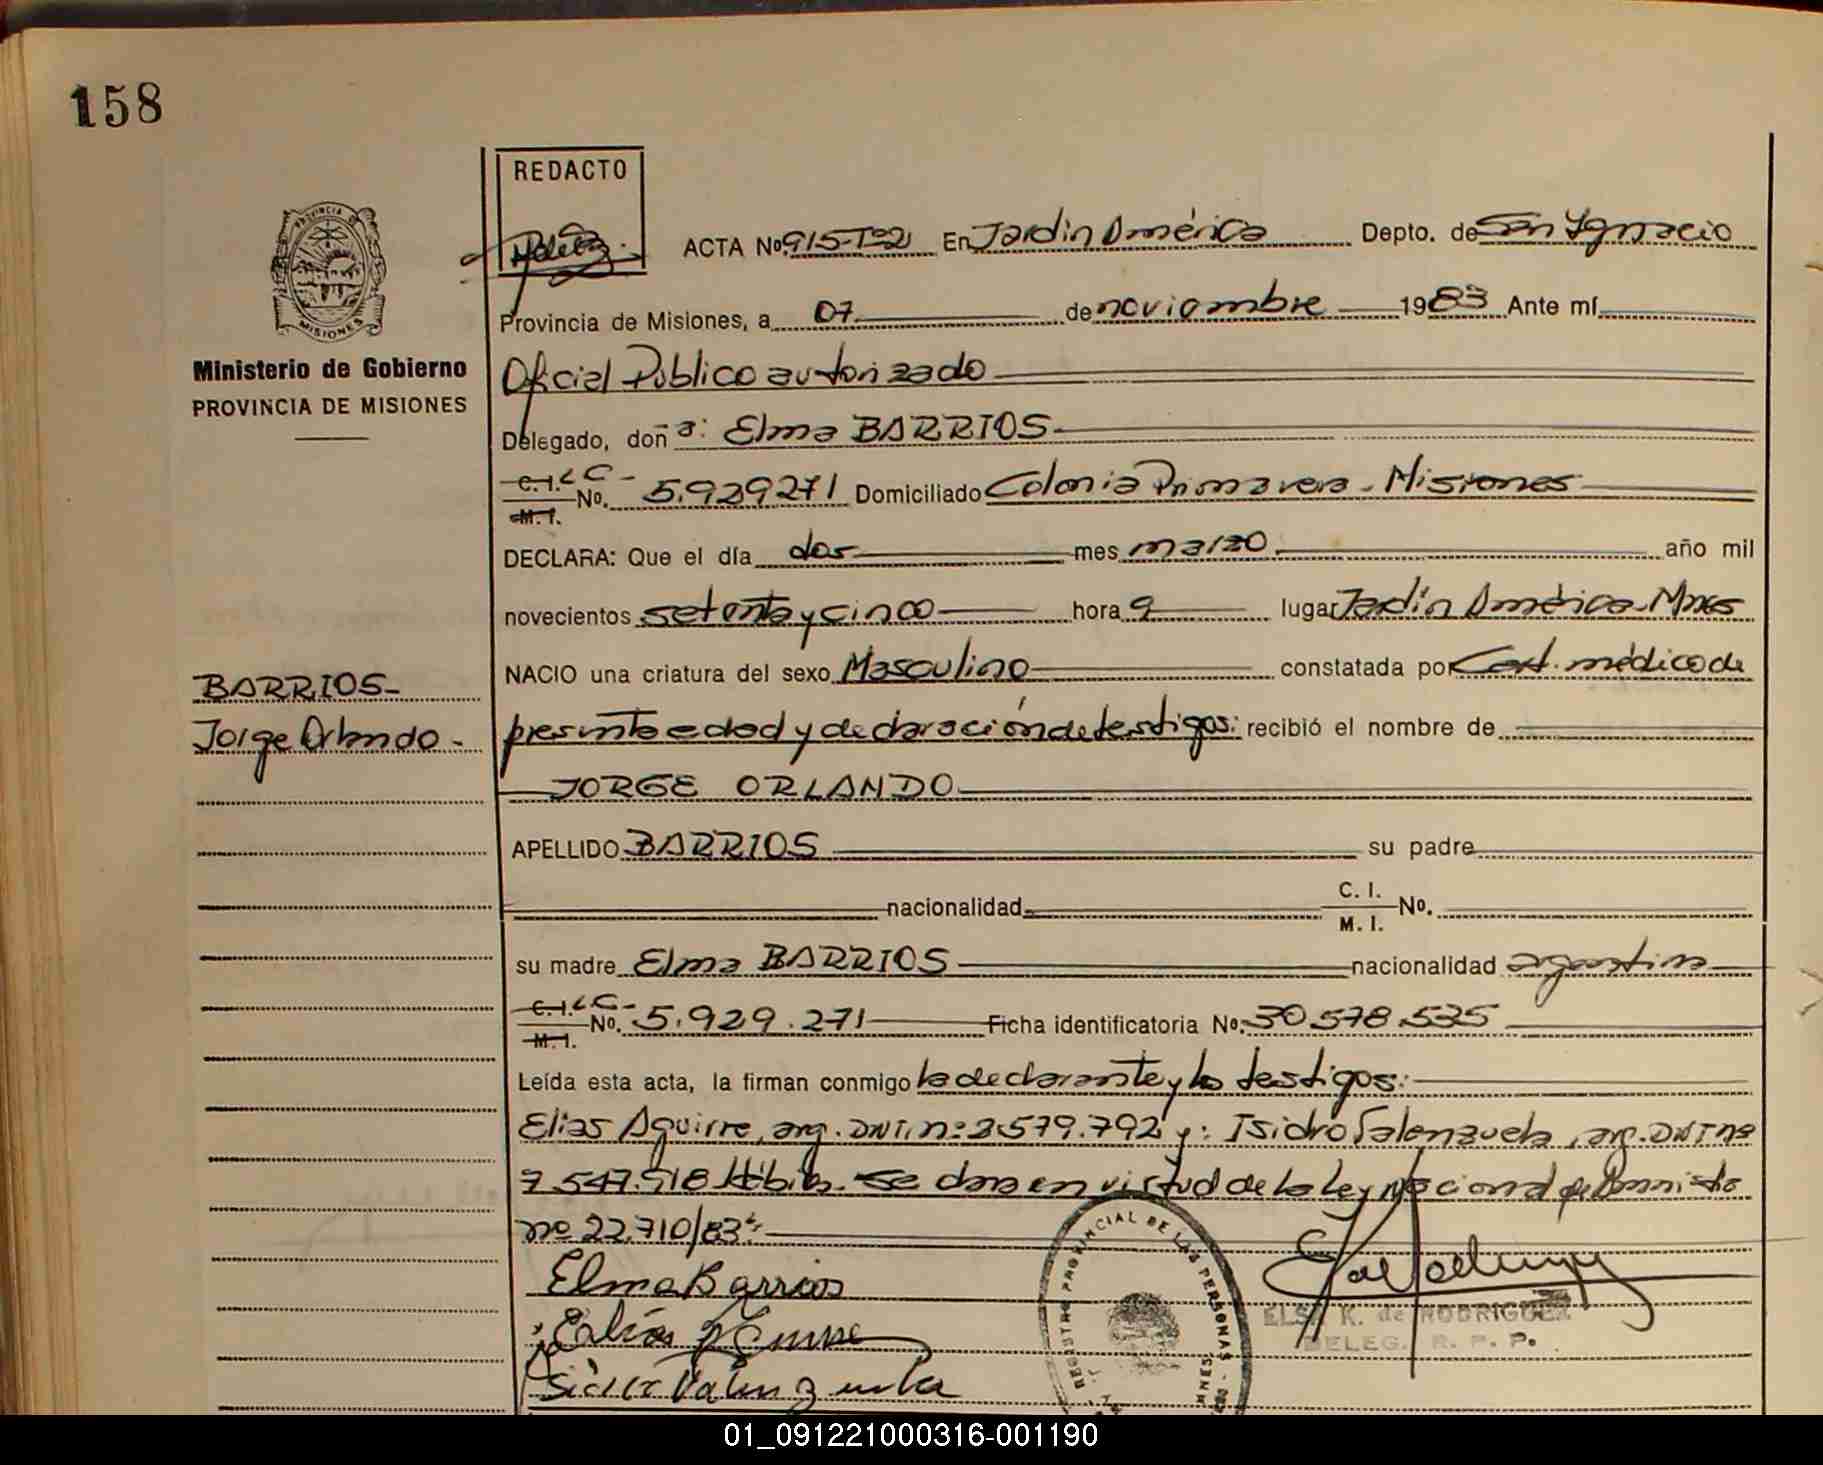 158
REDACTO
PROVINCIA DE
MISIONES
Ministerio de Gobierno
PROVINCIA DE MISIONES
ACTA No. 915-Tº2 En Jardín América Depto. de San Ignacio
Provincia de Misiones, a 07 de noviembre 1983 Ante mí
Oficial Público autorizado
Delegado, don a: Elma BARRIOS
C.I. L C - M. I. No. 5.929271 Domiciliado Colonia Primavera - Misiones
DECLARA: Que el día dos mes marzo año mil
novecientos setenta y cinco hora 9 lugar Jardín América - Mnes
NACIO una criatura del sexo Masculino constatada por Cert. médico de
presunta edad y declaración de testigos: recibió el nombre de
JORGE ORLANDO
BARRIOS-
Jorge Orlando -
APELLIDO BARRIOS su padre
nacionalidad C. I. M. I. No.
su madre Elma BARRIOS nacionalidad argentina
C.I. L C - M. I. No. 5.929.271 Ficha identificatoria No. 30.578.535
Leída esta acta, la firman conmigo la declarante y los testigos:
Elias Aguirre, arg. DNI. nº 3.579.792 y: Isidro Valenzuela, arg. DNI nº
7.547.918 Hábiles. Se labra en virtud de la Ley nacional de Amnistía
nº 22.710/83.
Elma Barrios
REGISTRO PROVINCIAL DE LAS PERSONAS
MNES.
ELSA K. de RODRIGUEZ
DELEG. R. P. P.
01_091221000316-001190